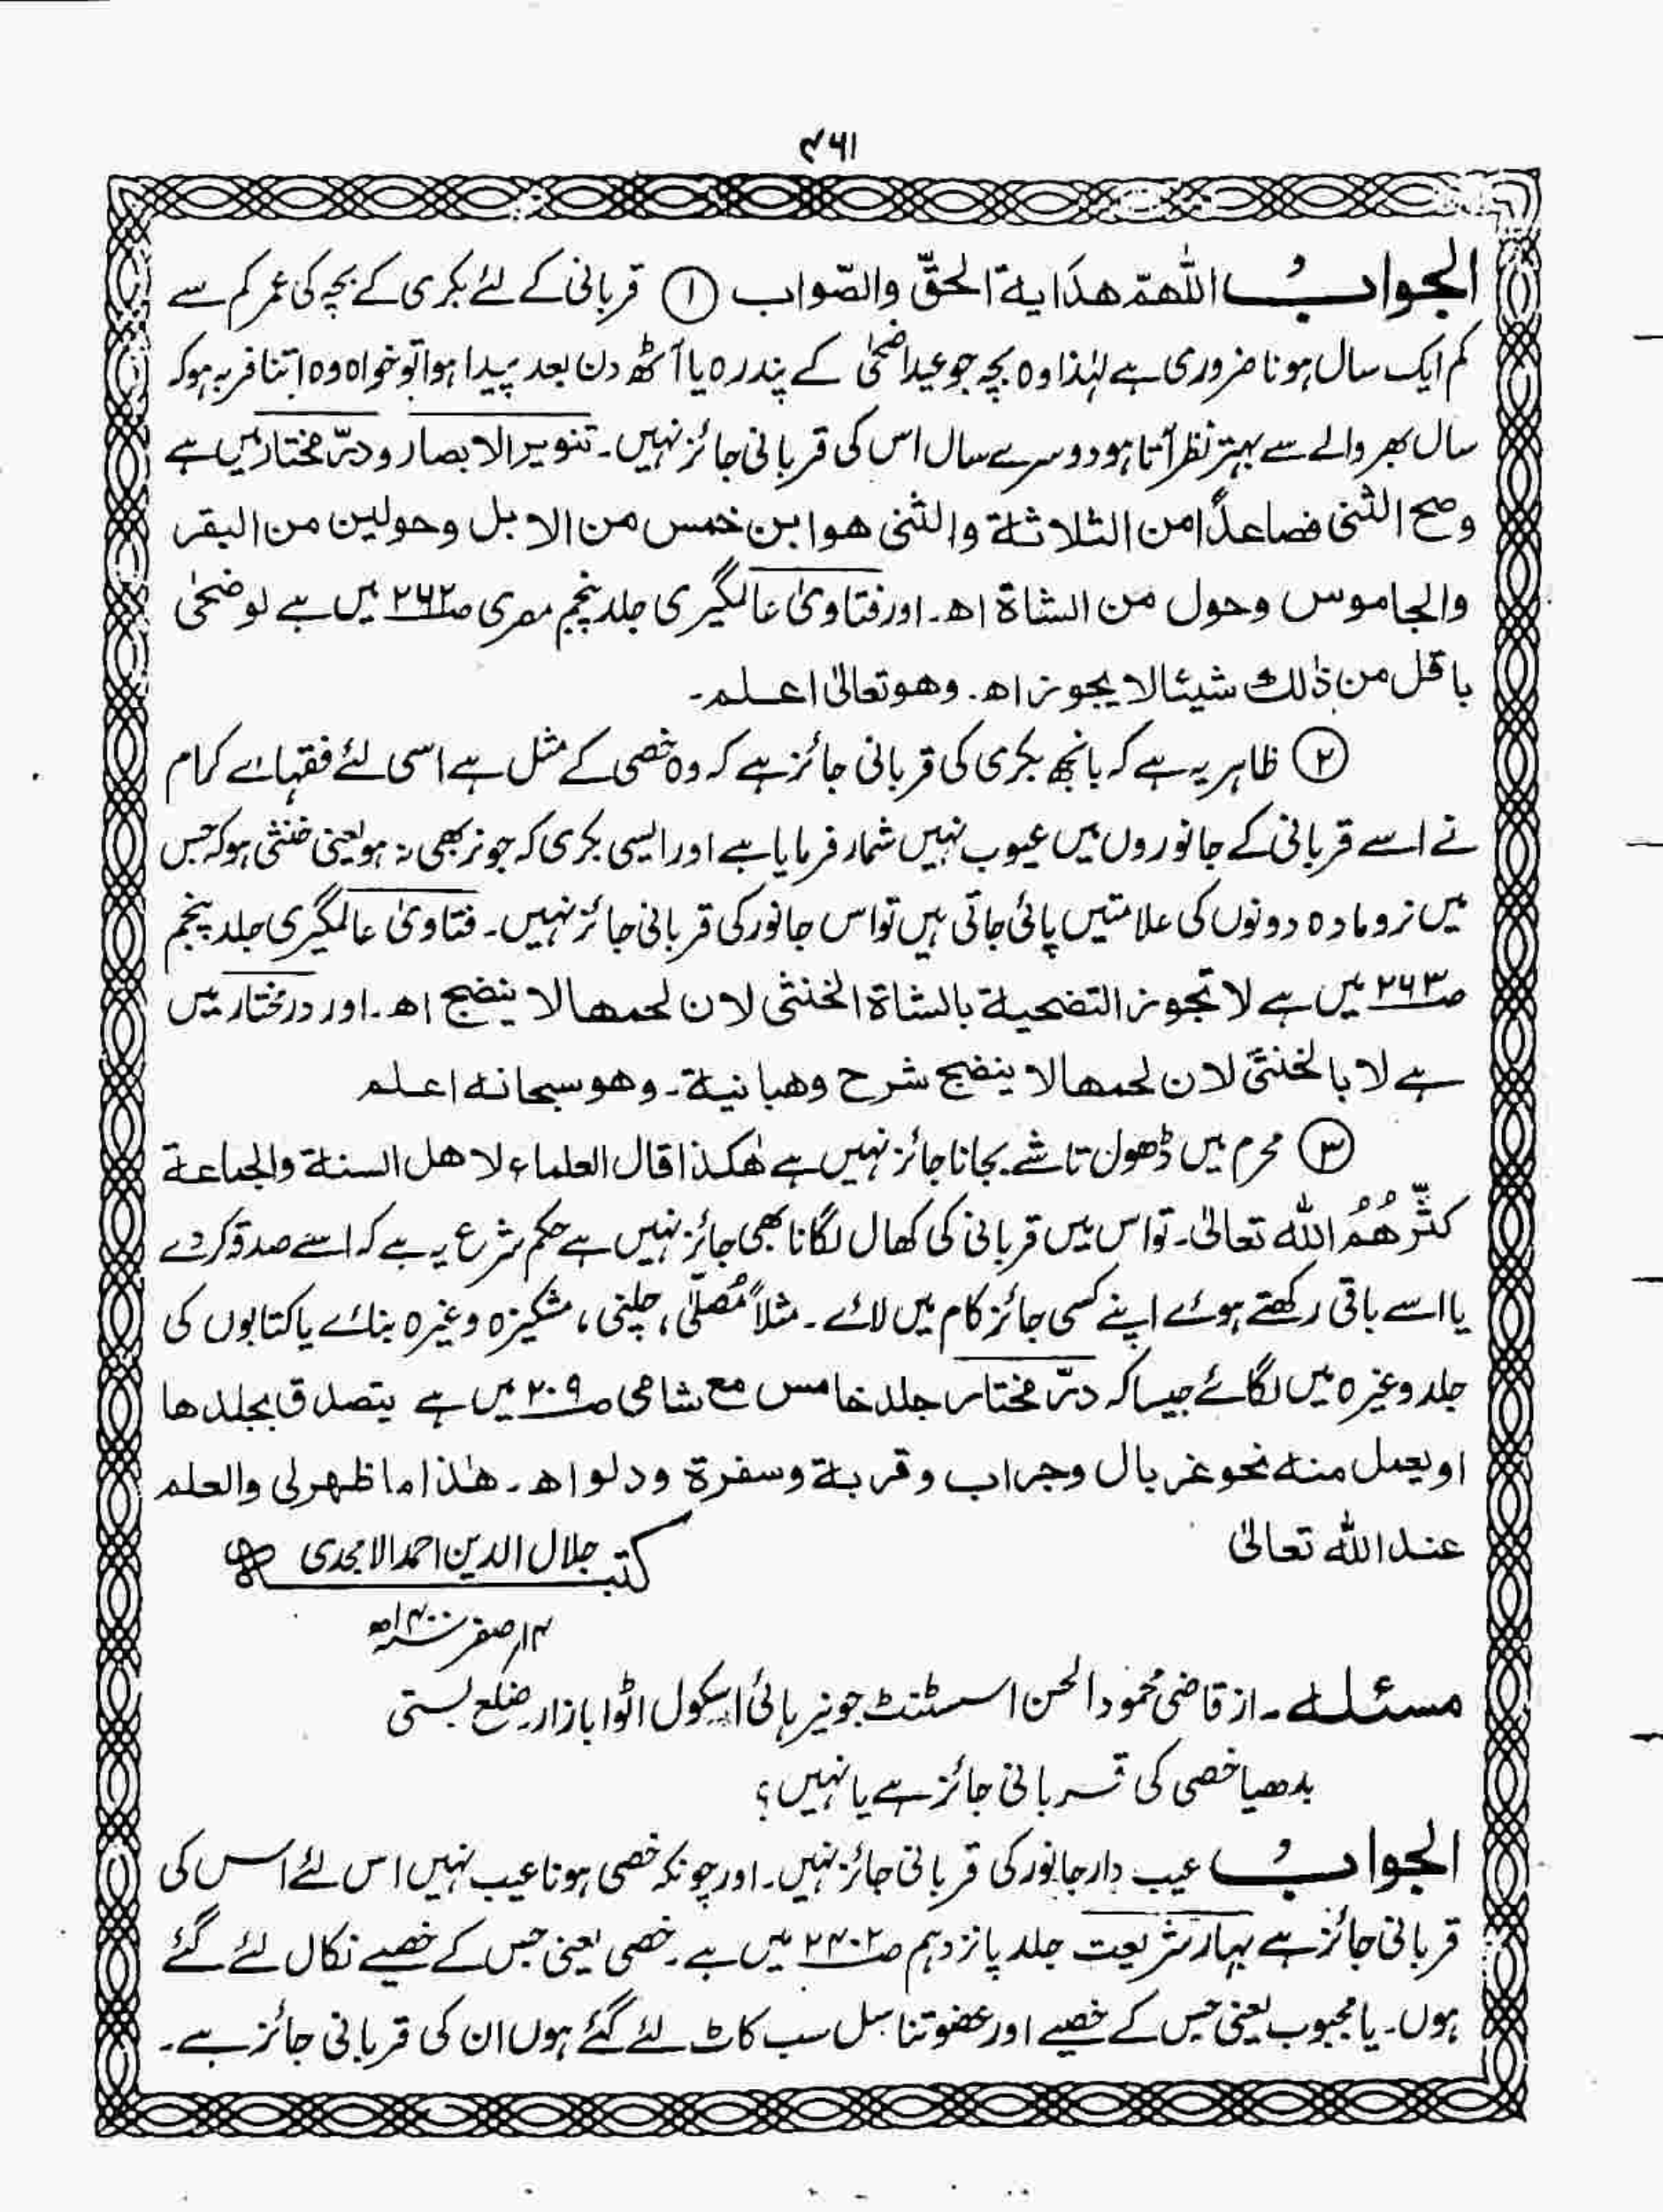 ۴۶۱
الجوابُ اللّٰھمّ ھدَایۃ الحقّ والصّواب ① قربانی کے لئے بکری کے بچہ کی عمر کم سے
کم ایک سال ہونا ضروری ہے لہٰذا وہ بچہ جو عید اضحٰی کے پندرہ یا آٹھ دن بعد پیدا ہوا تو خواہ وہ اتنا فربہ ہو کہ
سال بھر والے سے بہتر نظر آتا ہو دوسرے سال اس کی قربانی جائز نہیں۔ تنویر الابصار و درّ مختار میں ہے
وصح الثنی فصاعدًا من الثلاثۃ والثنی ھو ابن خمس من الابل وحولین من البقر
والجاموس وحول من الشاۃ اھ۔ اور فتاویٰ عالمگیری جلد پنجم مصری ص۲۶۲ میں ہے لو ضحٰی
باقل من ذٰلک شیئا لا یجوز اھ۔ وھو تعالیٰ اعلم۔
② ظاہر یہ ہے کہ بانجھ بکری کی قربانی جائز ہے کہ وہ خصی کے مثل ہے اسی لئے فقہائے کرام
نے اسے قربانی کے جانوروں میں عیوب نہیں شمار فرمایا ہے اور ایسی بکری کہ جو نر بھی نہ ہو یعنی خنثی ہو کہ جس
میں نر و مادہ دونوں کی علامتیں پائی جاتی ہیں تو اس جانور کی قربانی جائز نہیں۔ فتاویٰ عالمگیری جلد پنجم
ص۲۶۳ میں ہے لا تجوز التضحیۃ بالشاۃ الخنثی لان لحمھا لا ینضج اھ۔ اور درمختار میں
ہے لا بالخنثیٰ لان لحمھا لا ینضج شرح وھبانیۃ۔ وھو سبحانہ اعلم
③ محرم میں ڈھول تاشے بجانا جائز نہیں ہے ھٰکذا قال العلماء لاھل السنۃ والجماعۃ
کثّرھُمُ اللہ تعالیٰ۔ تو اس میں قربانی کی کھال لگانا بھی جائز نہیں ہے حکم شرع یہ ہے کہ اسے صدقہ کر دے
یا اسے باقی رکھتے ہوئے اپنے کسی جائز کام میں لائے۔ مثلاً مُصلّٰی، چلنی، مشکیزہ وغیرہ بنائے یا کتابوں کی
جلد وغیرہ میں لگائے جیسا کہ درّ مختار جلد خامس مع شامی ص۲۰۹ میں ہے یتصدق بجلدھا
او یعمل منہ نحو غربال وجراب وقربۃ وسفرۃ ودلو اھ۔ ھٰذا ما ظھر لی والعلم
عند اللہ تعالیٰ
کتبہ جلال الدین احمد الامجدی
۱۴؍ صفر سنہ ۱۴۰۰ھ
مسئلہ۔ از قاضی محمود الحسن اسسٹنٹ جونیر ہائی اسکول اٹوا بازار۔ ضلع بستی
بدھیا خصی کی قربانی جائز ہے یا نہیں؟
الجوابُ عیب دار جانور کی قربانی جائز نہیں۔ اور چونکہ خصی ہونا عیب نہیں اس لئے اس کی
قربانی جائز ہے بہار شریعت جلد پانزدہم ص۲۴۰۲ میں ہے۔ خصی یعنی جس کے خصیے نکال لئے گئے
ہوں۔ یا مجبوب یعنی جس کے خصیے اور عضو تناسل سب کاٹ لئے گئے ہوں ان کی قربانی جائز ہے۔